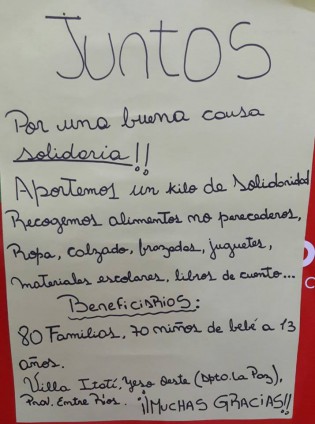 Juntos
Por una buena causa
solidaria!!
Aportemos un kilo de solidaridad
Recogemos alimentos no perecederos,
Ropa, calzado, frazadas, juguetes,
materiales escolares, libros de cuento...
Beneficiarios:
80 Familias, 70 niños de bebé a 13
años.
Villa Itatí, Yeso Oeste (Dpto. La Paz),
Prov. Entre Rios. ¡¡MUCHAS GRACIAS!!